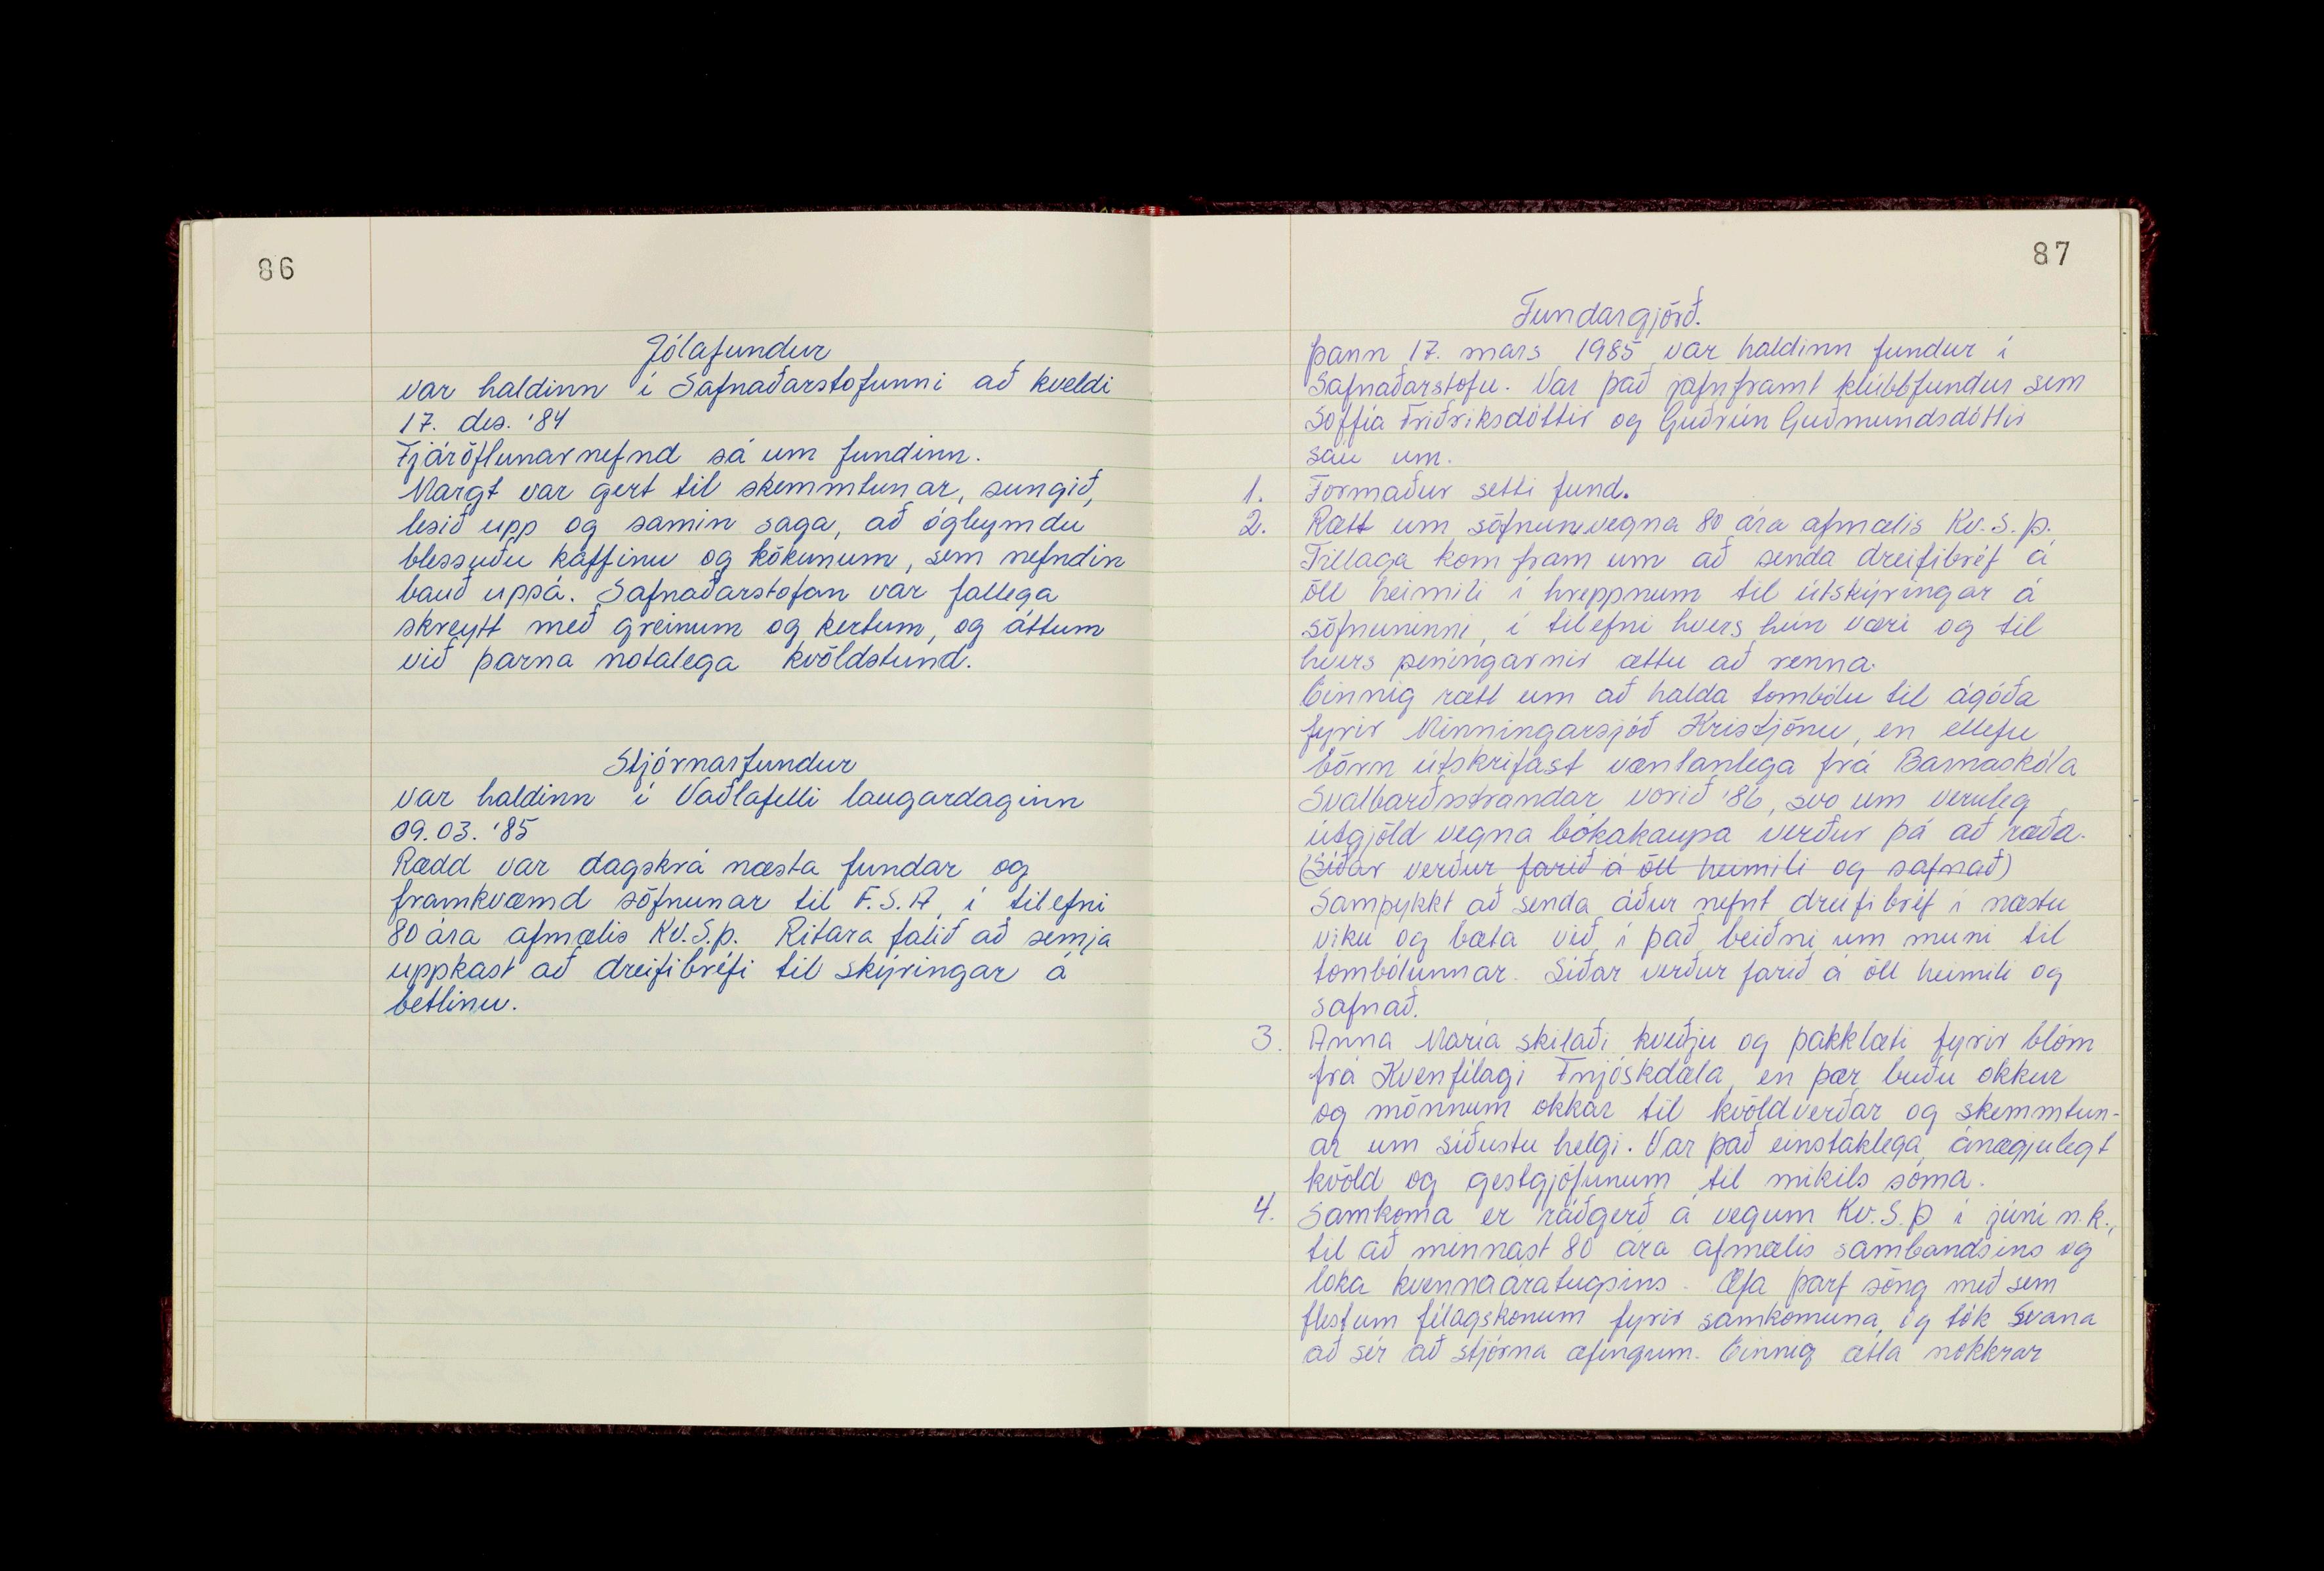 86
Jólafundur
var haldinn í Safnaðarstofunni að kveldi
17. des. '84
Fjáröflunarnefnd sá um fundinn.
Margt var gert til skemmtunar, sungið,
lesið upp og samin saga, að ógleymdu
blessuðu kaffinu og kökunum, sem nefndin
bauð uppá. Safnaðarstofan var fallega
skreytt með greinum og kertum, og áttum
við þarna notalega kvöldstund.
Stjórnarfundur
var haldinn í Vaðlafelli laugardaginn
09.03. '85
Rædd var dagskrá næsta fundar og
framkvæmd söfnunar til F.S.A. í tilefni
80 ára afmælis Kv.S.þ. Ritara falið að semja
uppkast að dreifibréfi til skýringar á
betlinu.
87
Fundargjörð.
Þann 17. mars 1985 var haldinn fundur í
Safnaðarstofu. Var það jafnframt klúbbfundur sem
Soffía Friðriksdóttir og Guðrún Guðmundsdóttir
sáu um.
1. Formaður setti fund.
2. Rætt um söfnun vegna 80 ára afmælis Kv.S.þ.
Tillaga kom fram um að senda dreifibréf á
öll heimili í hreppnum til útskýringar á
söfnuninni, í tilefni hvers hún væri og til
hvers peningarnir ættu að renna.
Einnig rætt um að halda tombólu til ágóða
fyrir Minningarsjóð Kristjönu, en ellefu
börn útskrifast væntanlega frá Barnaskóla
Svalbarðsstrandar vorið '86, svo um veruleg
útgjöld vegna bókakaupa verður þá að ræða.
(Síðar verður farið á öll heimili og safnað)
Samþykkt að senda áður nefnt dreifibréf í næstu
viku og bæta við í það beiðni um muni til
tombólunnar. Síðar verður farið á öll heimili og
safnað.
3. Anna María skilaði kveðju og þakklæti fyrir blóm
frá Kvenfélagi Fnjóskdæla, en þær buðu okkur
og mönnum okkar til kvöldverðar og skemmtun-
ar um síðustu helgi. Var það einstaklega ánægjulegt
kvöld og gestgjöfunum til mikils sóma.
4. Samkoma er ráðgerð á vegum Kv.S.þ í júní n.k.,
til að minnast 80 ára afmælis sambandsins og
loka kvennaáratugsins. Æfa þarf söng með sem
flestum félagskonum fyrir samkomuna, og tók Svana
að sér að stjórna æfingum. Einnig ætla nokkrar